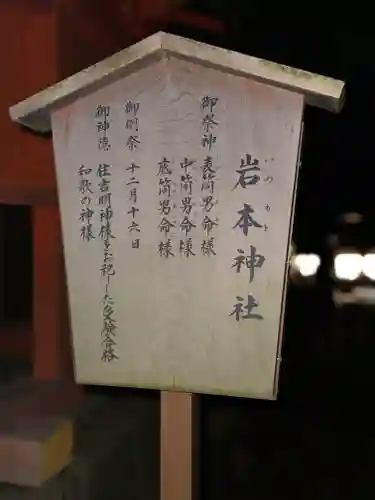 岩本神社
いわもと
御祭神 表筒男命様
中筒男命様
底筒男命様
御例祭 十二月十六日
御神徳 住吉明神様をお祀りした受験合格
和歌の神様